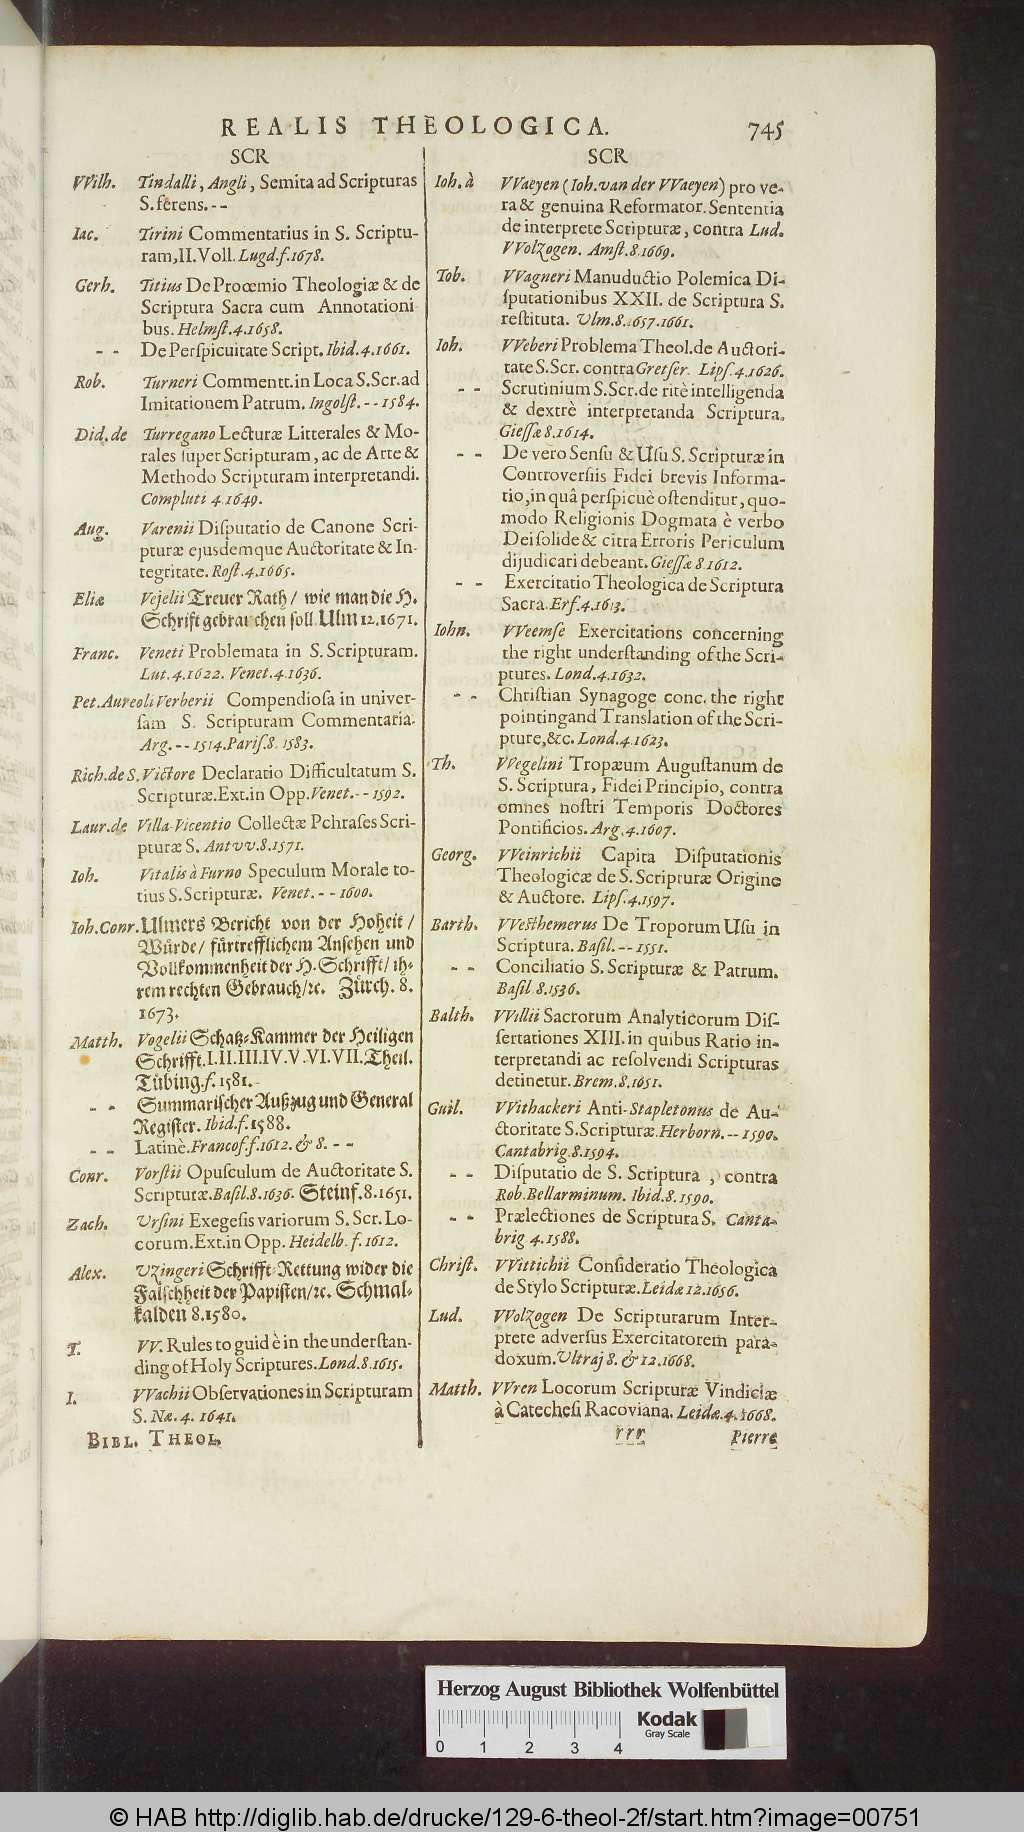 REALIS THEOLOGICA. 745
SCR
VVilh. Tindalli, Angli, Semita ad Scripturas
S. ferens. - -
Iac. Tirini Commentarius in S. Scriptu-
ram, II. Voll. Lugd. f. 1678.
Gerh. Titius De Proœmio Theologiæ & de
Scriptura Sacra cum Annotationi
bus. Helmſt. 4. 1658.
- - De Perſpicuitate Script. Ibid. 4. 1661.
Rob. Turneri Commentt. in Loca S. Scr. ad
Imitationem Patrum. Ingolſt. - - 1584.
Did. de Turregano Lecturæ Litterales & Mo-
rales ſuper Scripturam, ac de Arte &
Methodo Scripturam interpretandi.
Compluti 4. 1649.
Aug. Varenii Diſputatio de Canone Scri-
pturæ ejusdemque Auctoritate & In-
tegritate. Roſt. 4. 1665.
Eliæ Vejelii Treuer Rath / wie man die H.
Schrift gebrauchen ſoll. Ulm 12. 1671.
Franc. Veneti Problemata in S. Scripturam.
Lut. 4. 1622. Venet. 4. 1636.
Pet. Aureoli Verberii Compendioſa in univer-
ſam S. Scripturam Commentaria.
Arg. - - 1514. Pariſ. 8. 1583.
Rich. de S. Victore Declaratio Difficultatum S.
Scripturæ. Ext. in Opp. Venet. - - 1592.
Laur. de Villa-Vicentio Collectæ Pchraſes Scri-
pturæ S. Antvv. 8. 1571.
Ioh. Vitalis à Furno Speculum Morale to-
tius S. Scripturæ. Venet. - - 1600.
Ioh. Conr. Ulmers Bericht von der Hoheit /
Würde / fürtrefflichem Anſehen und
Vollkommenheit der H. Schrifft / ih-
rem rechten Gebrauch / ꝛc. Zürch. 8.
1673.
Matth. Vogelii Schatz-Kammer der Heiligen
Schrifft. I. II. III. IV. V. VI. VII. Theil.
Tübing. f. 1581. -
- - Summariſcher Außzug und General
Regiſter. Ibid. f. 1588.
- - Latinè. Francof. f. 1612. & 8. - -
Conr. Vorſtii Opuſculum de Auctoritate S.
Scripturæ. Baſil. 8. 1636. Steinf. 8. 1651.
Zach. Urſini Exegeſis variorum S. Scr. Lo-
corum. Ext. in Opp. Heidelb. f. 1612.
Alex. Uzingeri Schrifft-Rettung wider die
Falſchheit der Papiſten / ꝛc. Schmal-
kalden 8. 1580.
T. VV. Rules to guid è in the underſtan-
ding of Holy Scriptures. Lond. 8. 1615.
I. VVachii Obſervationes in Scripturam
S. Næ. 4. 1641.
BIBL. THEOL.
SCR
Ioh. à VVaeyen (Ioh. van der VVaeyen) pro ve-
ra & genuina Reformator. Sententia
de interprete Scripturæ, contra Lud.
VVolzogen. Amſt. 8. 1669.
Tob. VVagneri Manuductio Polemica Di-
ſputationibus XXII. de Scriptura S.
reſtituta. Ulm. 8. 1657. 1661.
Ioh. VVeberi Problema Theol. de Auctori-
tate S. Scr. contra Gretſer. Lipſ. 4. 1626.
- - Scrutinium S. Scr. de ritè intelligenda
& dextrè interpretanda Scriptura.
Gieſſæ 8. 1614.
- - De vero Senſu & Uſu S. Scripturæ in
Controverſiis Fidei brevis Informa-
tio, in quâ perſpicuè oſtenditur, quo-
modo Religionis Dogmata è verbo
Dei ſolide & citra Erroris Periculum
dijudicari debeant. Gieſſæ 8. 1612.
- - Exercitatio Theologica de Scriptura
Sacra. Erf. 4. 1613.
Iohn. VVeemſe Exercitations concerning
the right underſtanding of the Scri-
ptures. Lond. 4. 1632.
- - Chriſtian Synagoge conc. the right
pointingand Translation of the Scri-
pture, &c. Lond. 4. 1623.
Th. VVegelini Tropæum Auguſtanum de
S. Scriptura, Fidei Principio, contra
omnes noſtri Temporis Doctores
Pontificios. Arg. 4. 1607.
Georg. VVeinrichii Capita Diſputationis
Theologicæ de S. Scripturæ Origine
& Auctore. Lipſ. 4. 1597.
Barth. VVeſthemerus De Troporum Uſu in
Scriptura. Baſil. - - 1551.
- - Conciliatio S. Scripturæ & Patrum.
Baſil 8. 1536.
Balth. VVillii Sacrorum Analyticorum Diſ-
ſertationes XIII. in quibus Ratio in-
terpretandi ac reſolvendi Scripturas
detinetur. Brem. 8. 1651.
Guil. VVithackeri Anti-Stapletonus de Au-
ctoritate S. Scripturæ. Herborn. - - 1590.
Cantabrig. 8. 1594.
- - Diſputatio de S. Scriptura, contra
Rob. Bellarminum. Ibid. 8. 1590.
- - Prælectiones de Scriptura S. Canta-
brig 4. 1588.
Chriſt. VVittichii Conſideratio Theologica
de Stylo Scripturæ. Leidæ 12. 1656.
Lud. VVolzogen De Scripturarum Inter-
prete adverſus Exercitatorem para-
doxum. Ultraj 8. & 12. 1668.
Matth. VVren Locorum Scripturæ Vindiciæ
à Catecheſi Racoviana. Leidæ. 4. 1668.
rrr Pierre
Herzog August Bibliothek Wolfenbüttel
Kodak
Gray Scale
0 1 2 3 4
© HAB http://diglib.hab.de/drucke/129-6-theol-2f/start.htm?image=00751